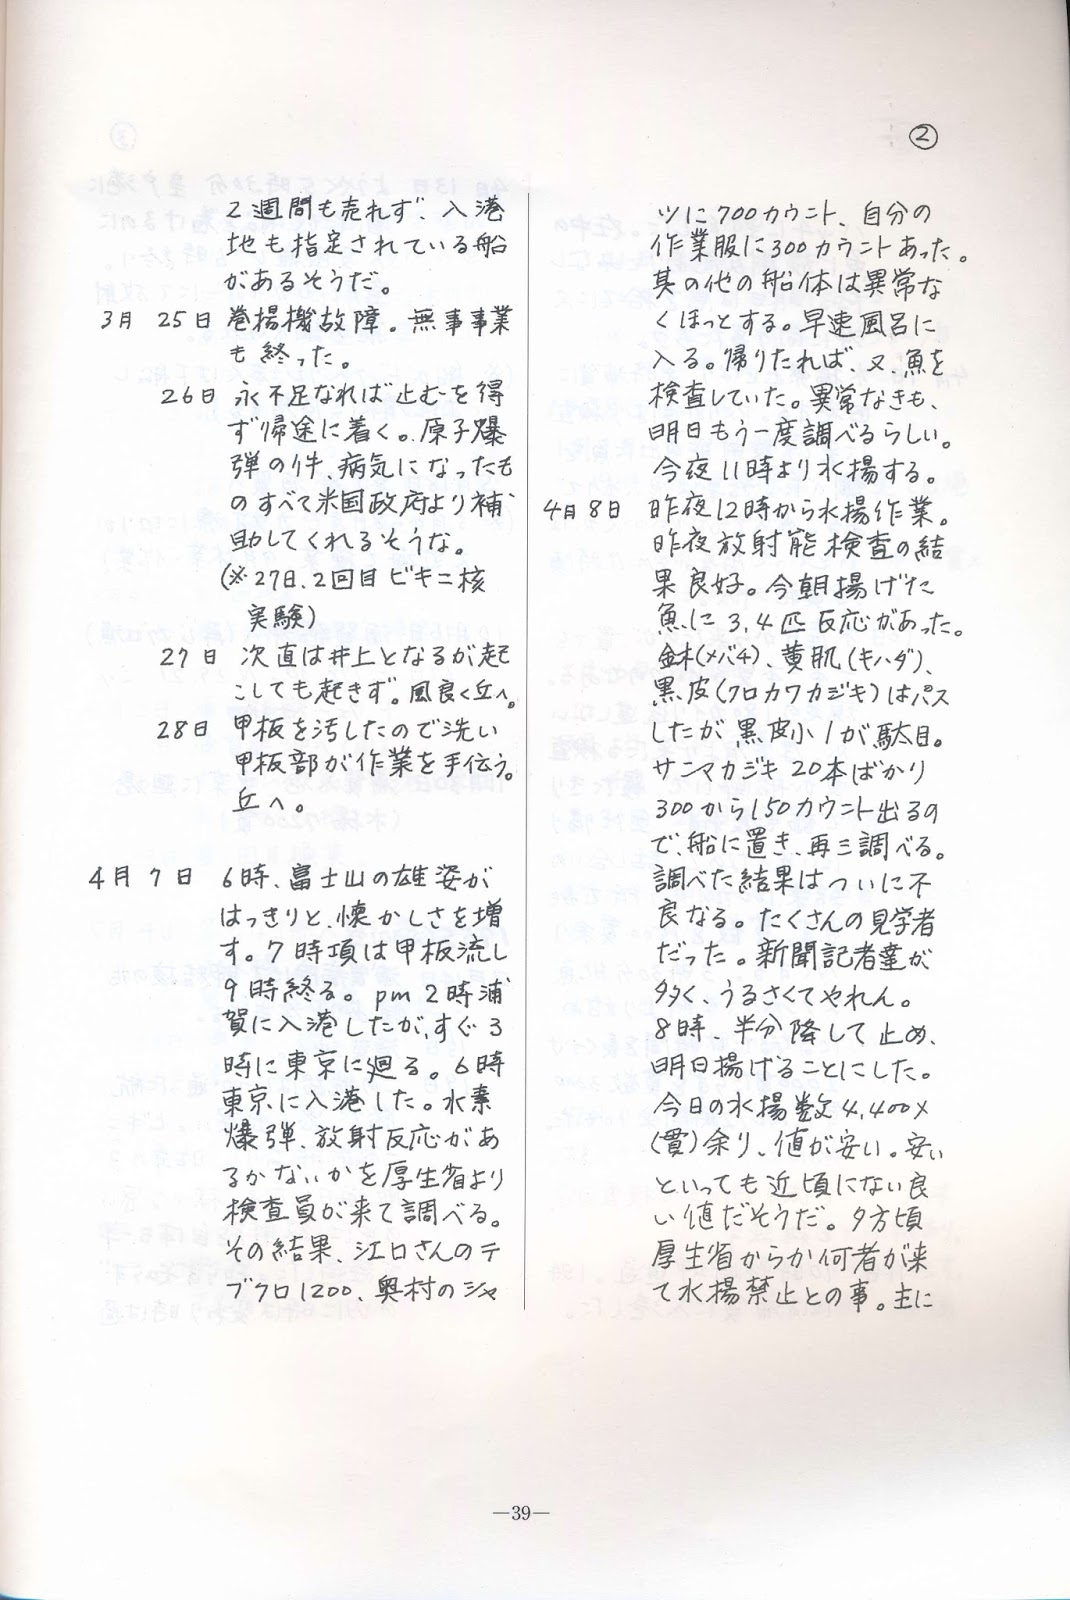 ②
2週間も売れず、入港
地も指定されている船
があるそうだ。
3月 25日 巻揚機故障。無事事業
も終った。
26日 永不足なれば止むを得
ず帰途に着く。原子爆
弾の件、病気になったも
のすべて米国政府より補
助してくれるそうな。
(※27日、2回目ビキニ核
実験)
27日 次直は井上となるが起
こしても起きず。風良く丘へ。
28日 甲板を汚したので洗い
甲板部が作業を手伝う。
丘へ。
4月 7日 6時、富士山の雄姿が
はっきりと、懐かしさを増
す。7時項は甲板流し
9時終る。pm 2時浦
賀に入港したが、すぐ3
時に東京に廻る。6時
東京に入港した。水素
爆弾、放射反応があ
るかないかを厚生省より
検査員が来て調べる。
その結果、江口さんのテ
ブクロ1200、奥村のシャ
ツに700カウント、自分の
作業服に300カウントあった。
其の他の船体は異常な
くほっとする。早速風呂に
入る。帰りたれば、又、魚を
検査していた。異常なきも、
明日もう一度調べるらしい。
今夜11時より水揚する。
4月8日 昨夜12時から水揚作業。
昨夜放射能検査の結
果良好。今朝揚げた
魚に3,4匹反応があった。
(メバチ)、黄肌(キハダ)、
黒皮(クロカワカジキ)はパス
したが、黒皮小1が駄目。
サンマカジキ20本ばかり
300から150カウント出るの
で、船に置き、再三調べる。
調べた結果はついに不
良なる。たくさんの見学者
だった。新聞記者達が
多く、うるさくてやれん。
8時、半分降して止め、
明日揚げることにした。
今日の水揚数4,400メ
(貫)余り、値が安い。安い
といっても近頃にない良
い値だそうだ。夕方頃
厚生省からか何者が来
て水揚禁止との事。主に
—39—